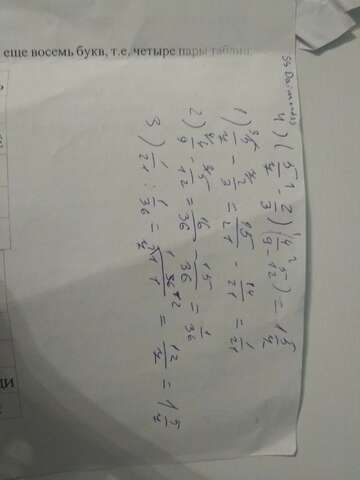 еще восемь букв, т.е. четыре пары
4) (5/7 - 2/3) : (4/9 - 5/12) = 1 5/7
1) 5/7 - 2/3 = 15/21 - 14/21 = 1/21
2) 4/9 - 5/12 = 16/36 - 15/36 = 1/36
3) 1/21 : 1/36 = 1 36/21 1 = 12/7 = 1 5/7